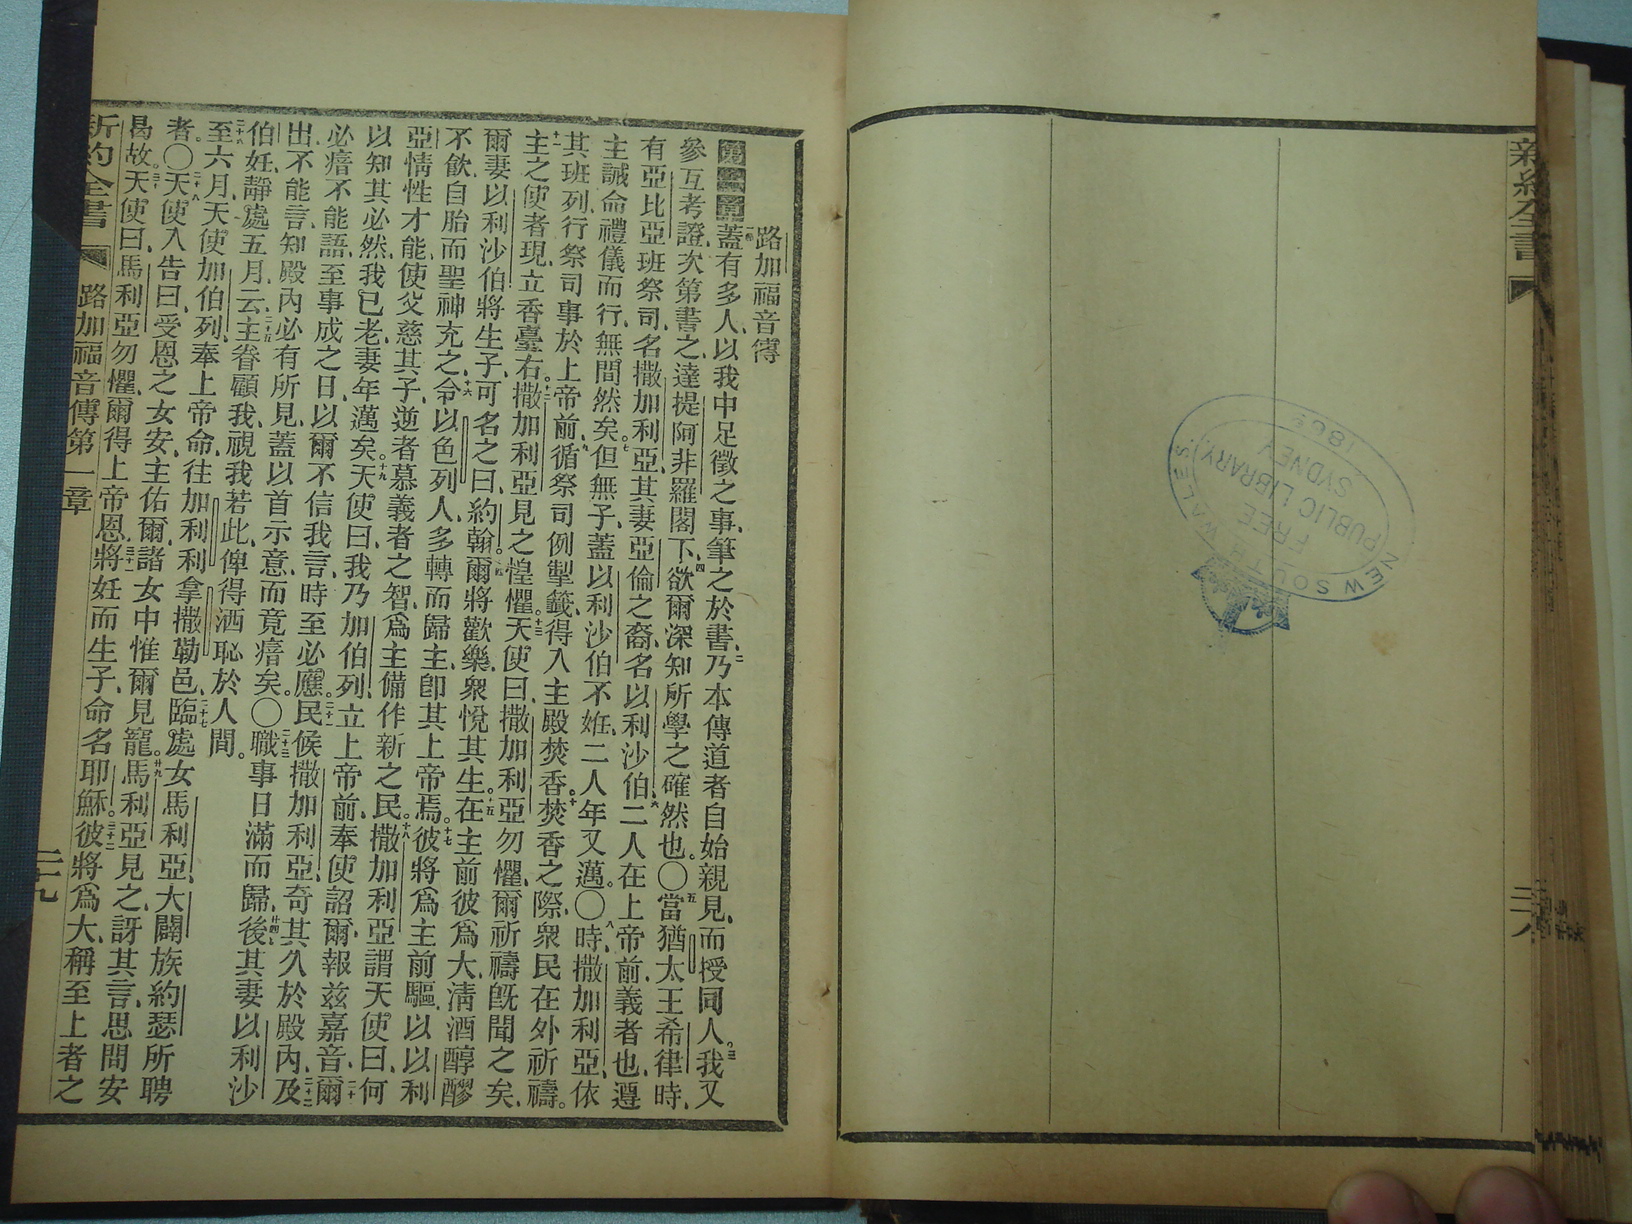 新約全書
二十八
NEW SOUTH WALES
FREE
PUBLIC LIBRARY
SYDNEY
1869
路加福音傳
第一章一蓋有多人、以我中足徵之事、筆之於書、二乃本傳道者自始親見、而授同人。三我又
參互考證、次第書之、達提阿非羅閣下、四欲爾深知所學之確然也。〇五當猶太王希律時、
有亞比亞班祭司、名撒加利亞、其妻亞倫之裔、名以利沙伯、六二人在上帝前、義者也、遵
主誡命禮儀而行、無間然矣。七但無子、蓋以利沙伯不姙、二人年又邁。〇八時、撒加利亞、依
其班列、行祭司事於上帝前、九循祭司例掣籤、得入主殿焚香。十焚香之際、衆民在外祈禱。
十一主之使者現、立香臺右。十二撒加利亞見之惶懼。十三天使曰、撒加利亞勿懼、爾祈禱旣聞之矣、
爾妻以利沙伯將生子、可名之曰約翰。十四爾將歡樂、衆悅其生。十五在主前彼爲大、淸酒醇醪
不飲、自胎而聖神充之、十六令以色列人、多轉而歸主、卽其上帝焉。十七彼將爲主前驅、以以利
亞情性才能、使父慈其子、逆者慕義者之智、爲主備作新之民。十八撒加利亞謂天使曰、何
以知其必然、我已老、妻年邁矣。十九天使曰、我乃加伯列、立上帝前、奉使詔爾、報玆嘉音、二十爾
必瘖不能語、至事成之日、以爾不信我言、時至必應。二十一民候撒加利亞、奇其久於殿內、二十二及
出、不能言、知殿內必有所見、蓋以首示意、而竟瘖矣。〇二十三職事日滿而歸、廿四後其妻以利沙
伯妊、靜處五月、云、二十五主眷顧我、視我若此、俾得洒恥於人間。
二十六至六月、天使加伯列、奉上帝命、往加利利拿撒勒邑、二十七臨處女馬利亞、大闢族約瑟所聘
者。〇二十八天使入告曰、受恩之女安、主佑爾、諸女中惟爾見寵。廿九馬利亞見之、訝其言、思問安
曷故。三十天使曰、馬利亞勿懼、爾得上帝恩、三十一將妊而生子、命名耶穌。三十二彼將爲大、稱至上者之
新約全書
路加福音傳第一章
二十九